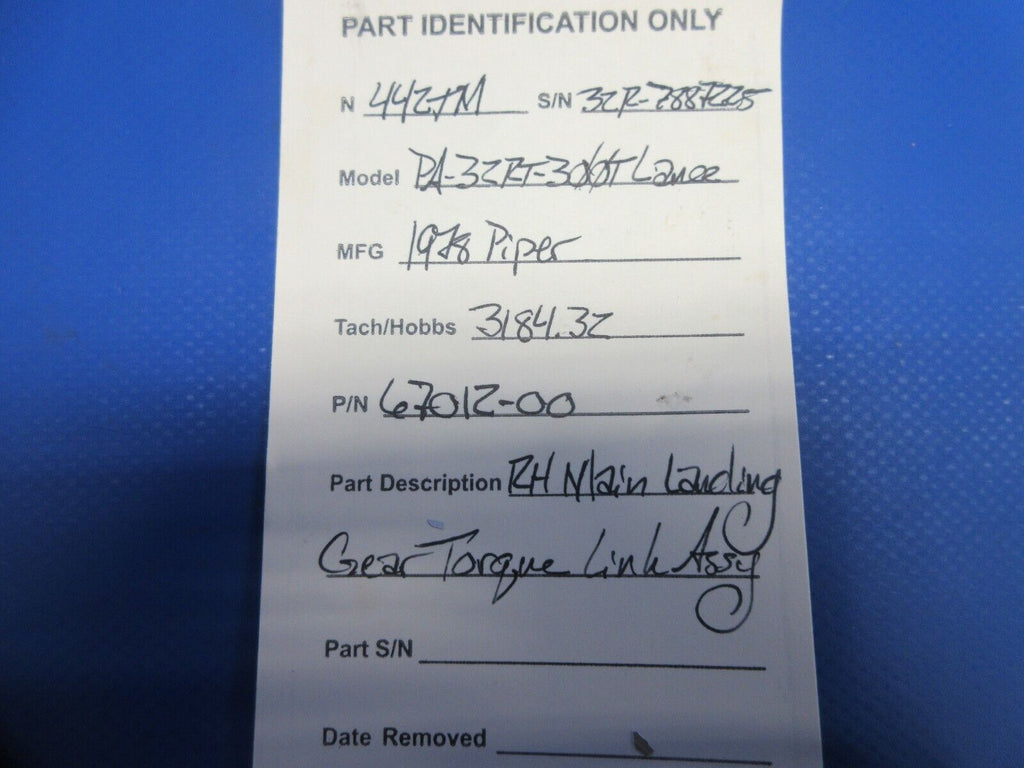 PART IDENTIFICATION ONLY
N 442TM S/N 32R-7887225
Model PA-32RT-300T Lance
MFG 1978 Piper
Tach/Hobbs 3184.32
P/N 67012-00
Part Description RH Main Landing
Gear Torque Link Assy
Part S/N
Date Removed